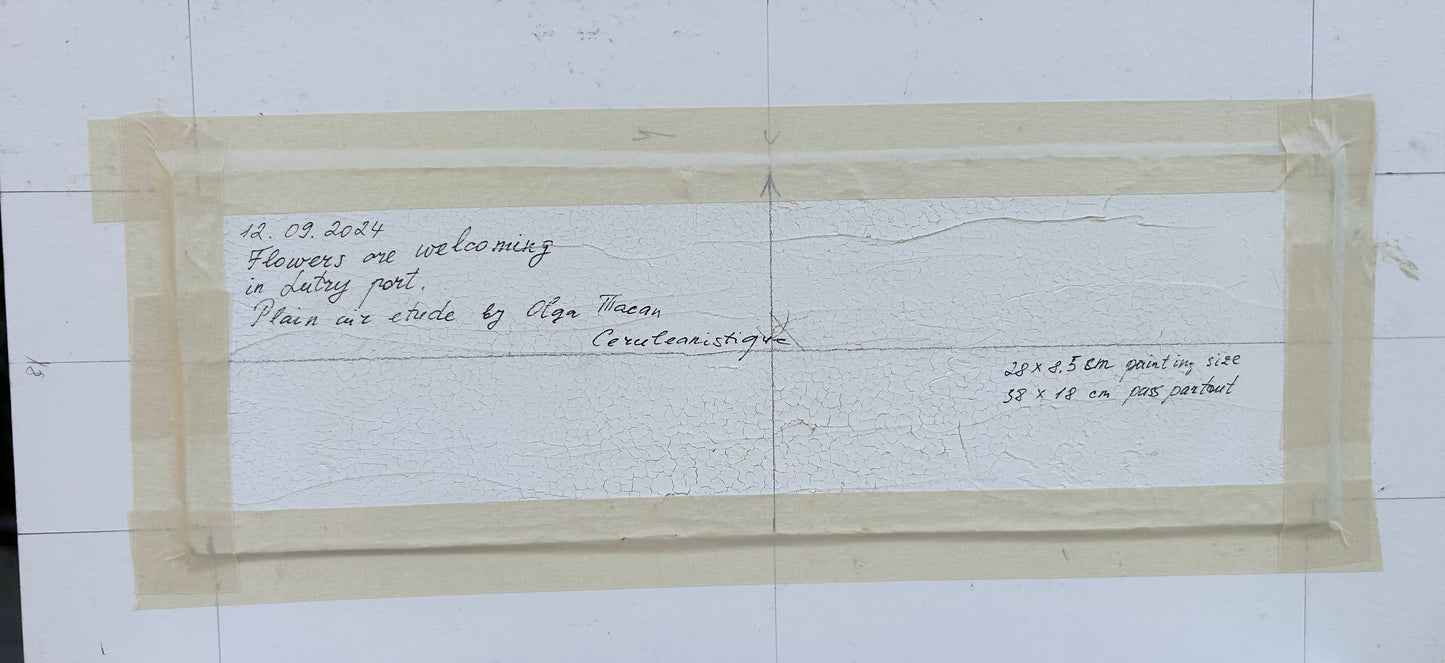 12. 09. 2024
Flowers are welcoming
in Lutry port.
Plain air etude by Olga
Ceruleanistique
28 x 8.5 cm painting size
38 x 18 cm pass partout